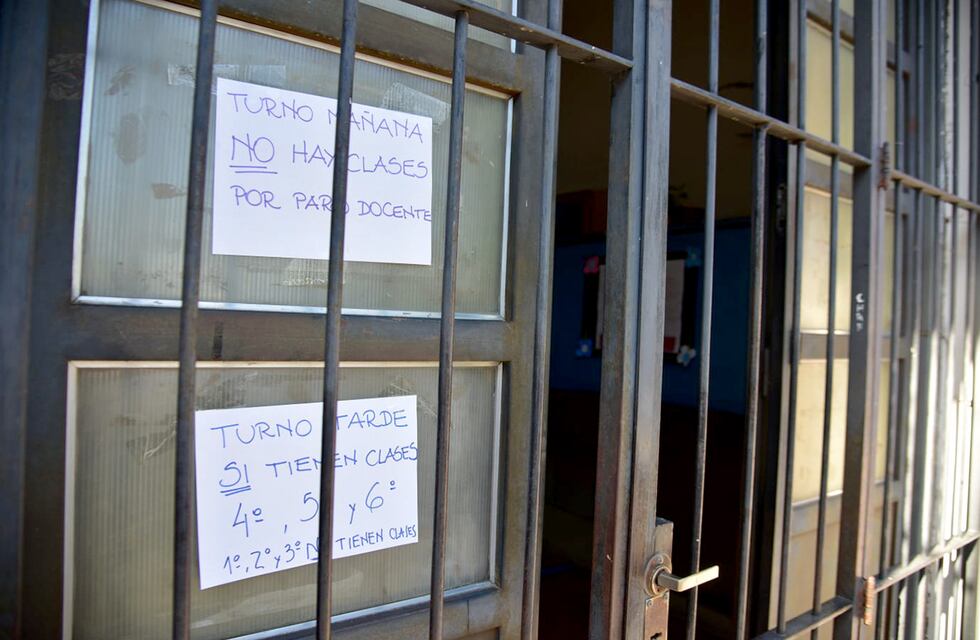 TURNO MAÑANA
NO HAY CLASES
POR PARO DOCENTE
TURNO TARDE
SI TIENEN CLASES
4º, 5 y 6º
1º, 2º y 3º NO TIENEN CLASES